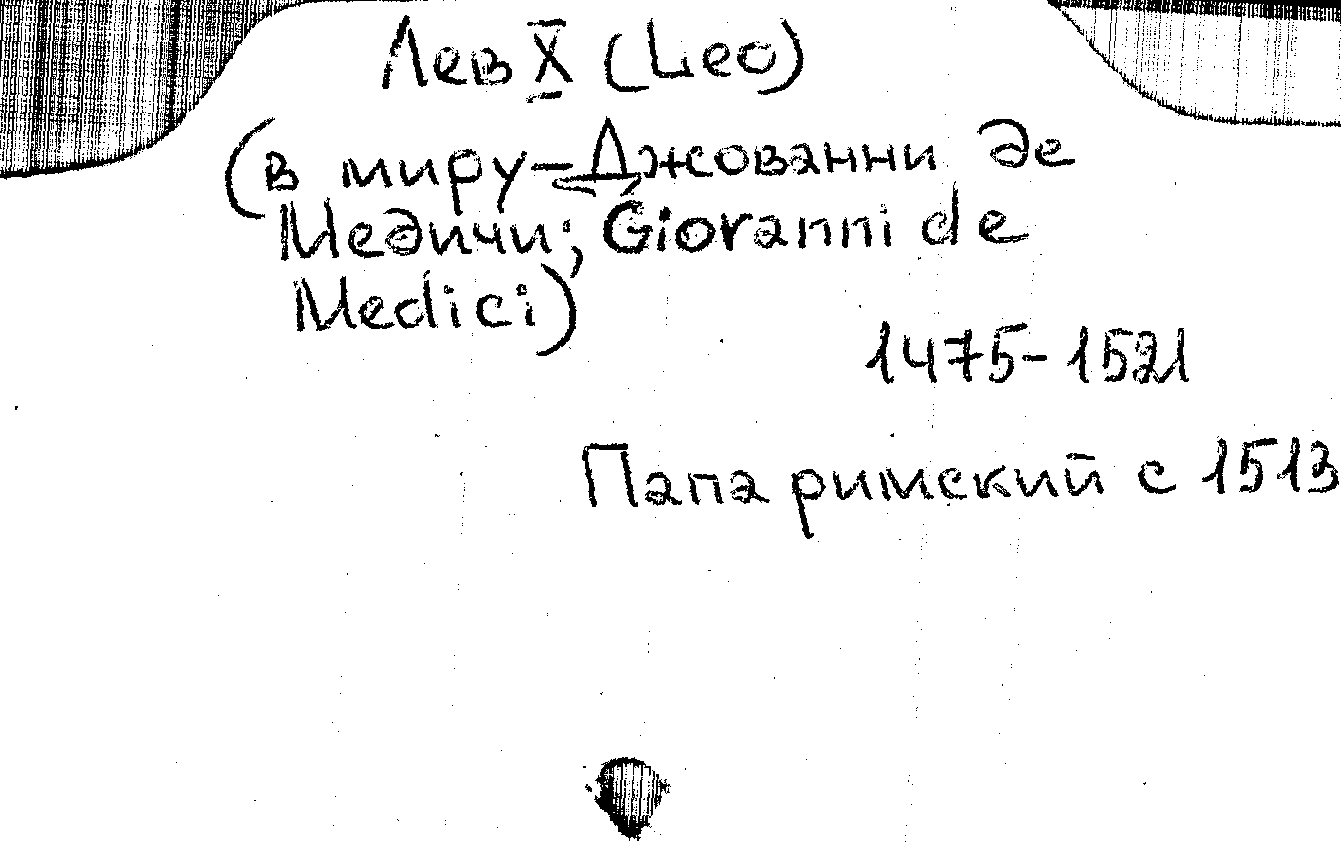 Лев X (Leo)
(в миру – Джованни де
Медичи; Giovanni de
Medici)
1475-1521
Папа римский с 1513